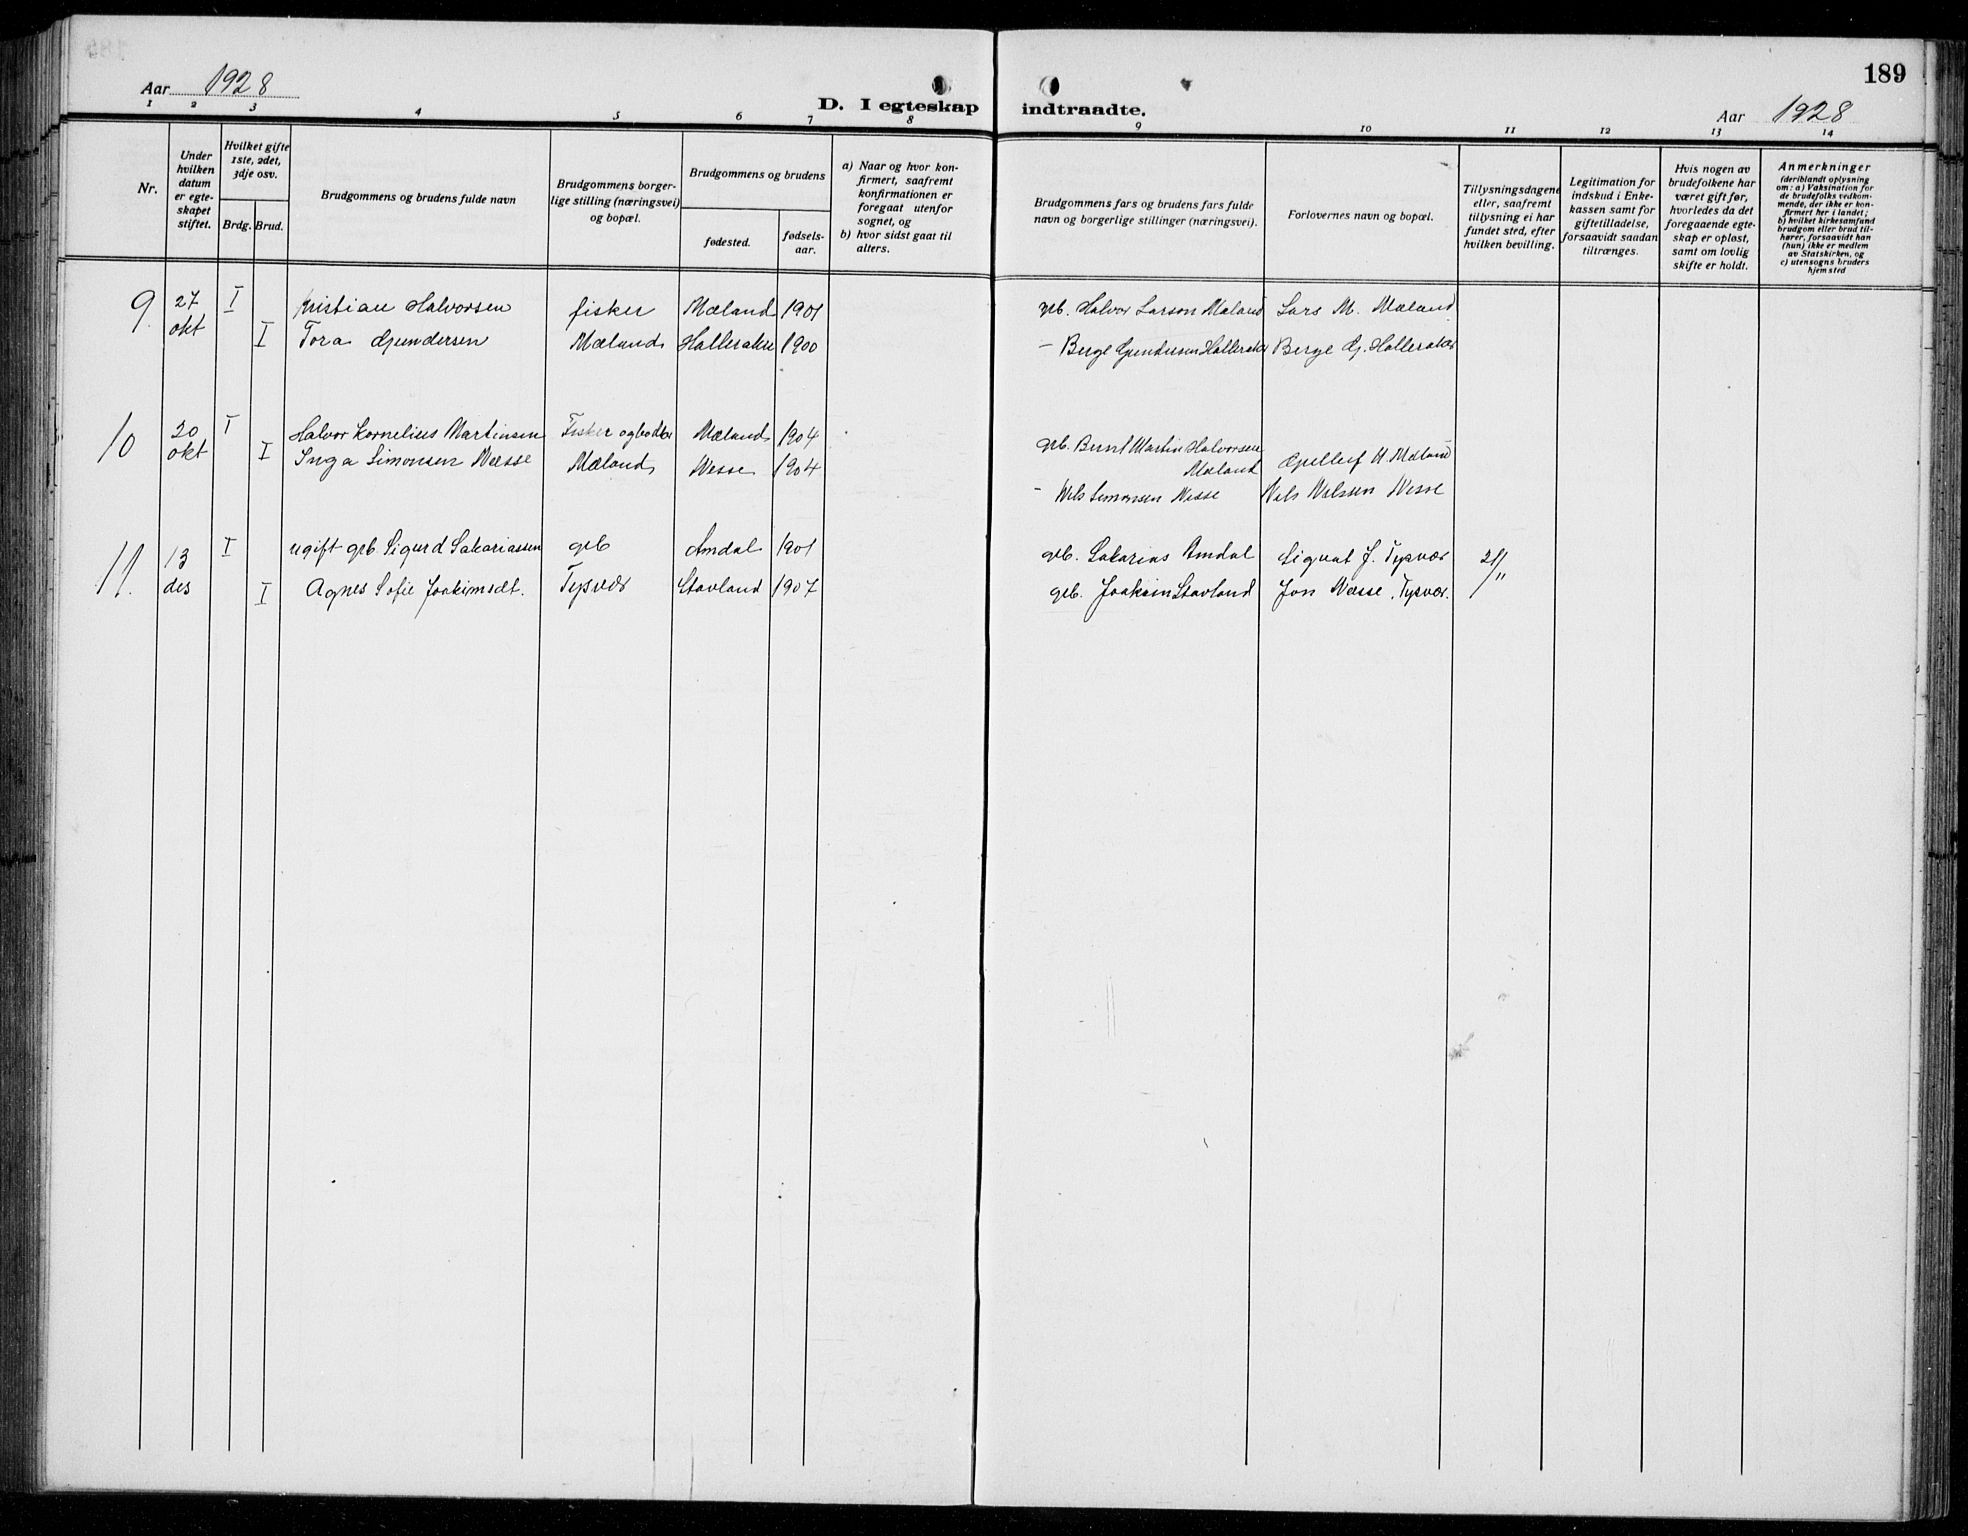 189
Aar 1928
D. I egteskap indtraadte.
Aar 1928
1 2 3 4 5 6 7 8 9 10 11 12 13 14
Nr.
Under hvilken datum er egte-skapet stiftet.
Hvilket gifte 1ste, 2det, 3dje osv.
Brdg. Brud.
Brudgommens og brudens fulde navn
Brudgommens borger-
lige stilling (næringsvei)
og bopæl.
Brudgommens og brudens
fødested.
fødsels-
aar.
a) Naar og hvor kon-
firmert, saafremt
konfirmationen er
foregaat utenfor
sognet, og
b) hvor sidst gaat til
alters.
Brudgommens fars og brudens fars fulde
navn og borgerlige stillinger (næringsvei).
Forlovernes navn og bopæl.
Tillysningsdagene
eller, saafremt
tillysning ei har
fundet sted, efter
hvilken bevilling.
Legitimation for
indskud i Enke-
kassen samt for
giftetilladelse,
forsaavidt saadan
tiltrænges.
Hvis nogen av
brudefolkene har
været gift før,
hvorledes da det
foregaaende egte-
skap er opløst,
samt om lovlig
skifte er holdt.
Anmerkninger
(deriblandt oplysning
om: a) Vaksination for
de brudefolks vedkom-
mende, der ikke er kon-
firmert her i landet;
b) hvilket kirkesamfund
brudgom eller brud til-
hører, forsaavidt han
(hun) ikke er medlem
av Statskirken, og
c) utensogns bruders
hjemsted
9. 27 I Kristian Halvorsen fisker Mæland 1901 gb. Halvor Larson Mæland Lars M. Mæland
okt I Tora Gundersen Mæland Halleraker 1900 – Berge Gundersen Halleraker Berge G. Halleraker
10 20 I Halvor Kornelius Martinsen Fisker og Mæland 1904 gb. Bernt Martin Halvorsen
Mæland Gjellef H. Mæland
okt I Inga Simonsen Næsse Mæland Nesse 1904 – Nils Simonsen Nesse Nils Nilssen Nesse
11. 13 I ugift gb Sigurd Sakariassen gb Amdal 1901 gb. Sakarias Amdal Sigvat J. Tysvær 21/11
des I Agnes Sofie Joakimsdt. Tysvær Stavland 1907 gb. Joakim Stavland Jon Næsse, Tysvær.